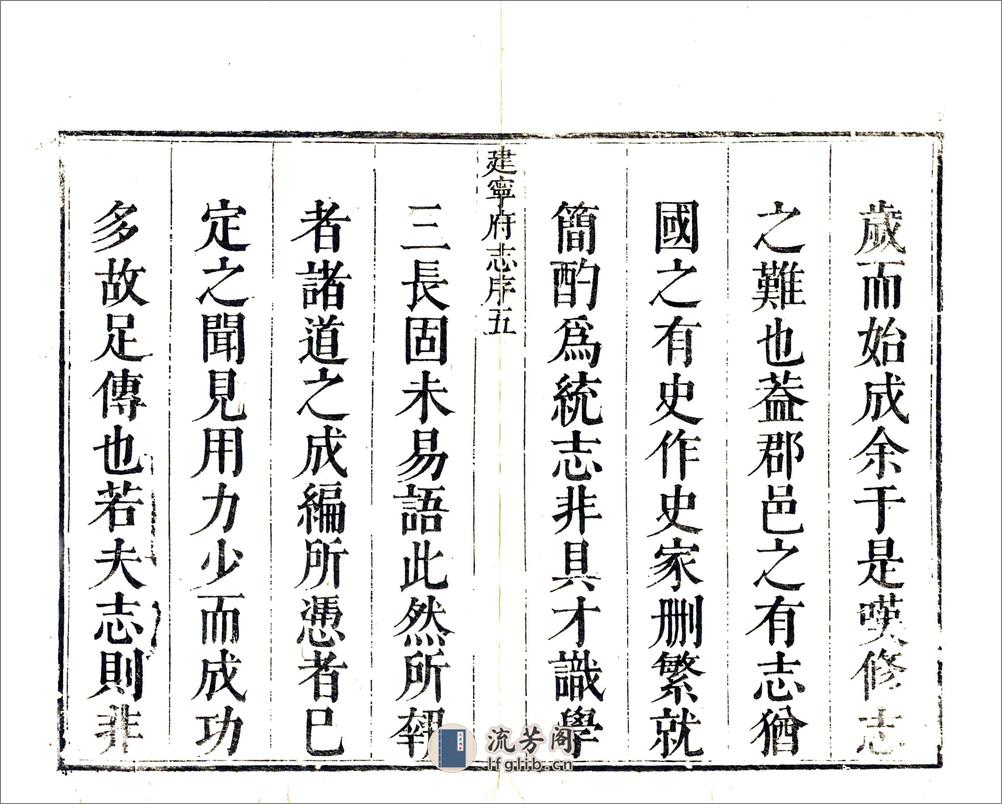 歲而始成余于是嘆修志
之難也葢郡邑之有志猶
國之有史作史家刪繁就
簡酌爲統志非具才識學
建寧府志序五
三長固未易語此然所
者諸道之成編所憑者已
定之聞見用力少而成功
多故足傳也若夫志則非
流芳阁
lfglib.cn